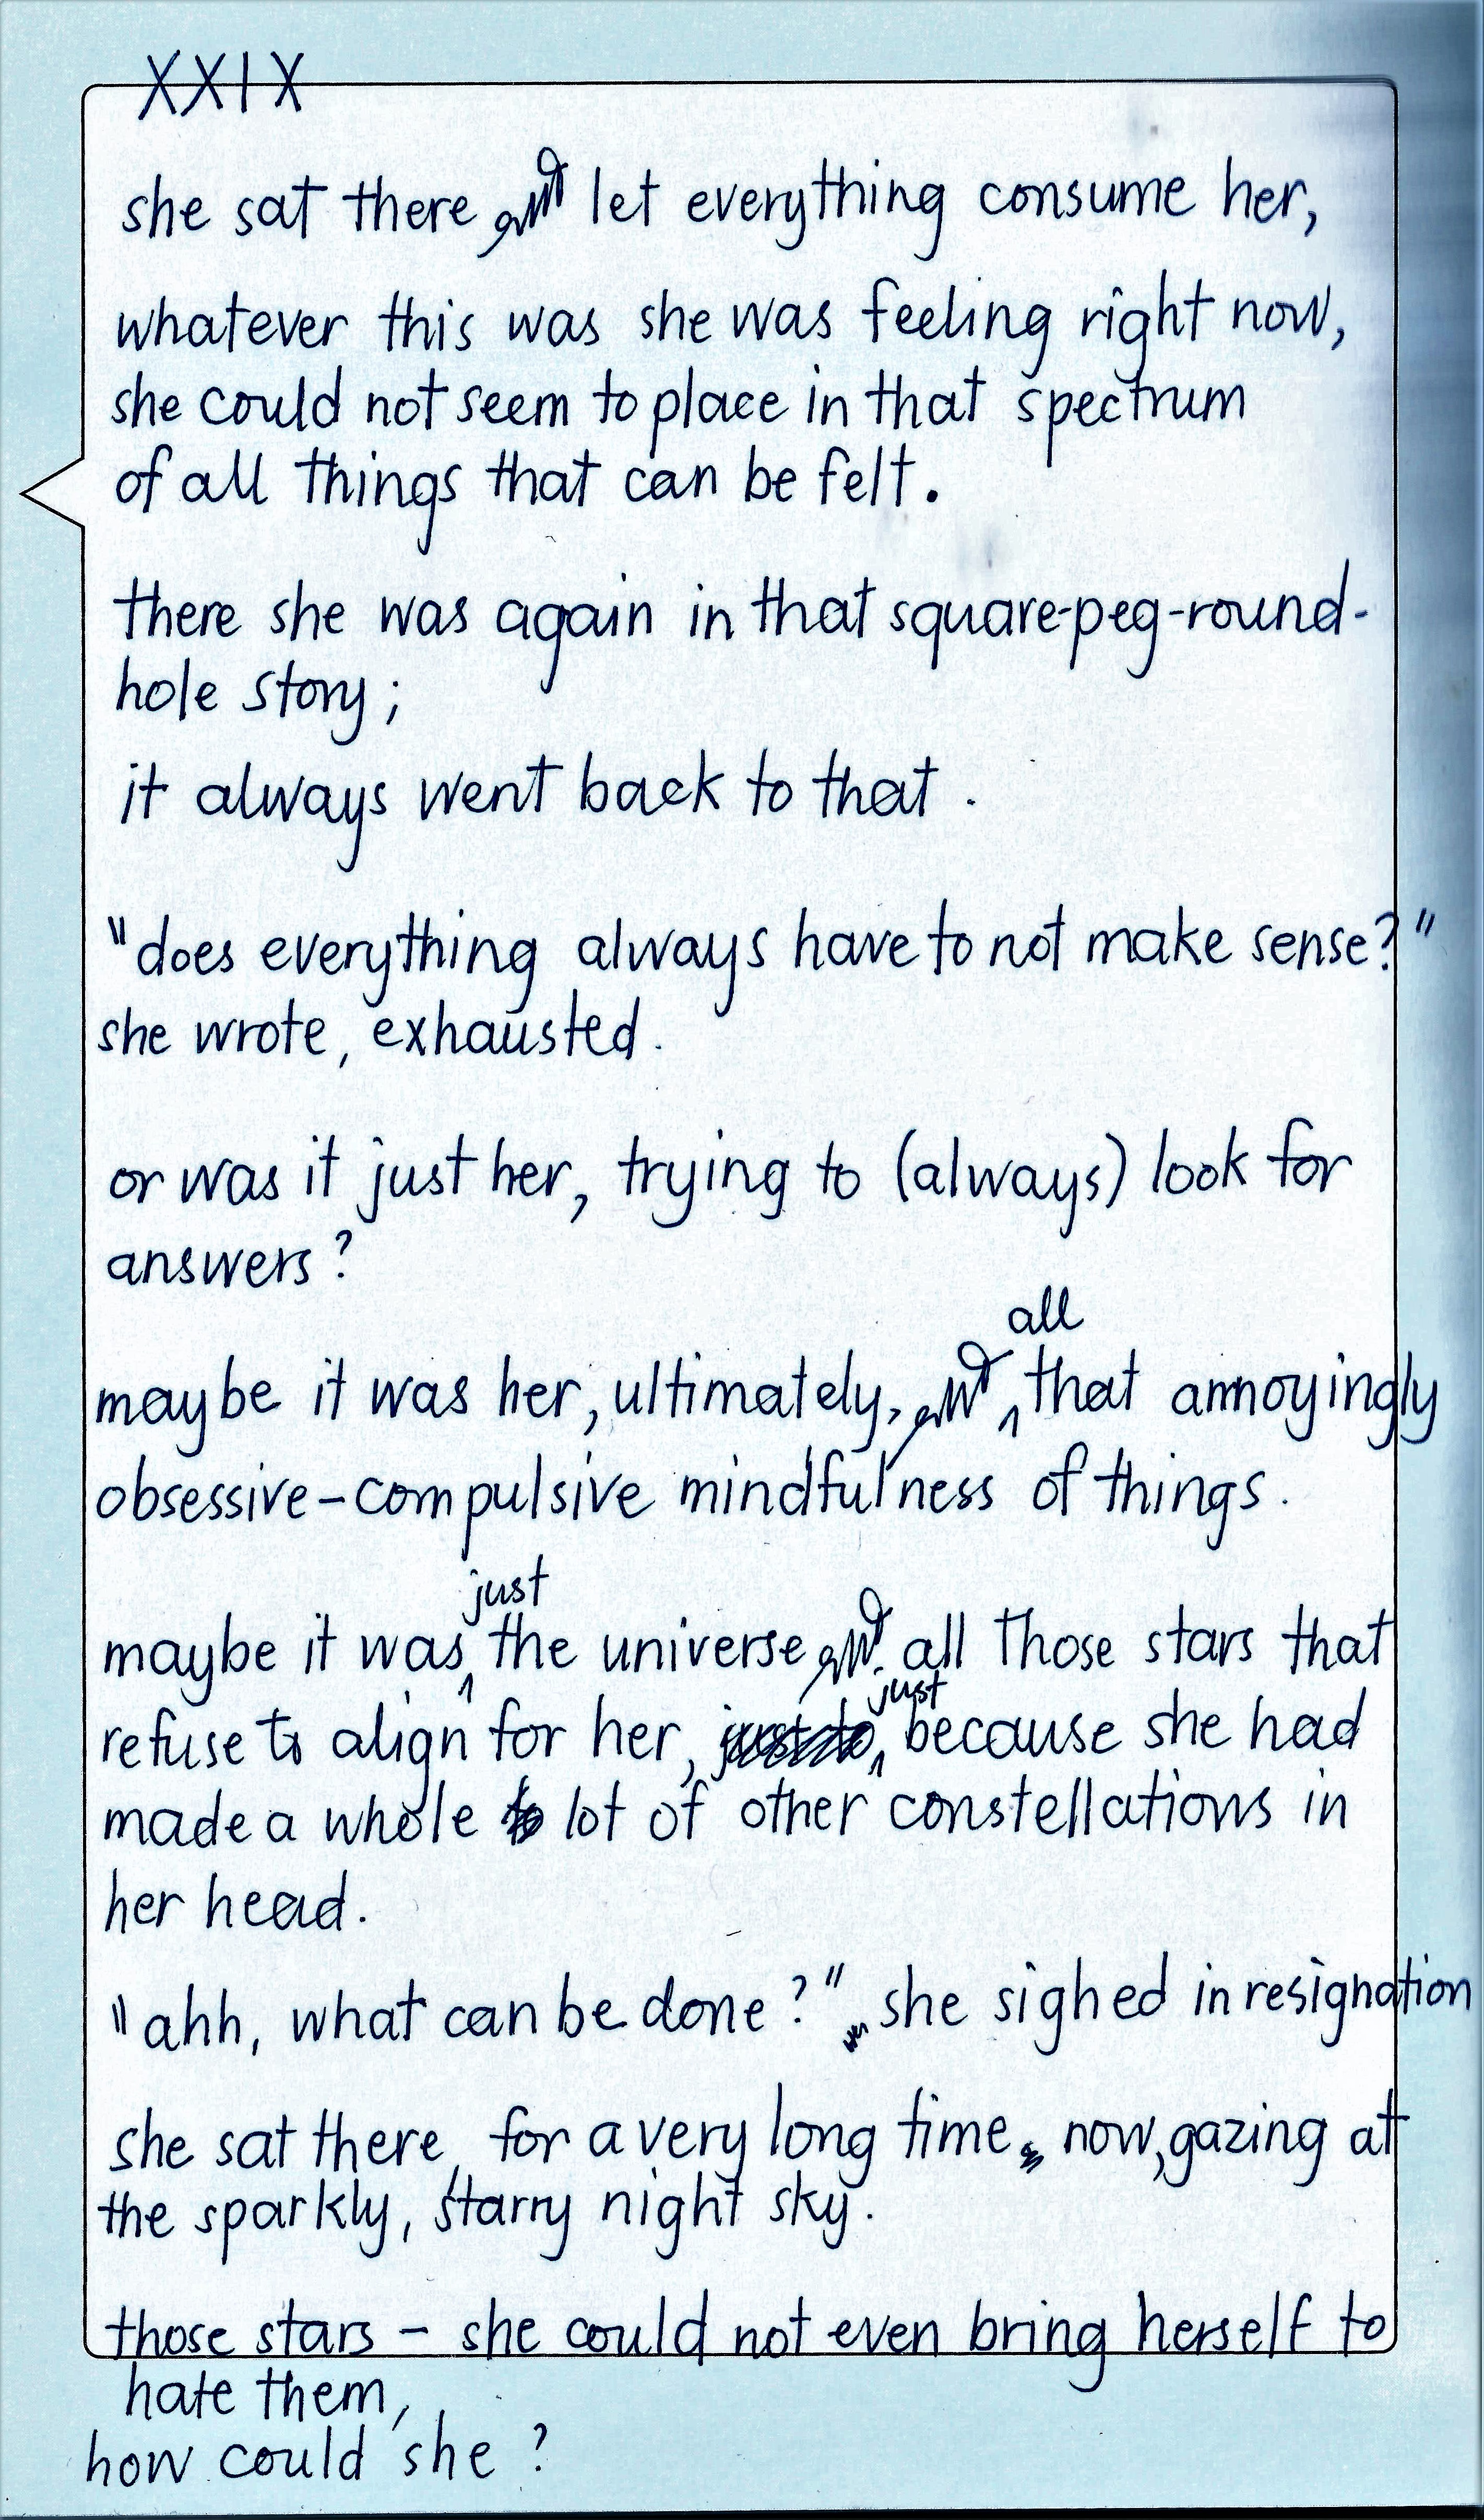 XXIX
she sat there and let everything consume her,
whatever this was she was feeling right now,
she could not seem to place in that spectrum
of all things that can be felt.
there she was again in that square-peg-round-
hole story;
it always went back to that.
"does everything always have to not make sense?"
she wrote, exhausted.
or was it just her, trying to (always) look for
answers?
maybe it was her, ultimately, and all that annoyingly
obsessive-compulsive mindfulness of things.
maybe it was just the universe and all those stars that
refuse to align for her, just because she had
made a whole lot of other constellations in
her head.
"ahh, what can be done?" she sighed in resignation
she sat there, for a very long time, now, gazing at
the sparkly, starry night sky.
those stars - she could not even bring herself to
hate them,
how could she?